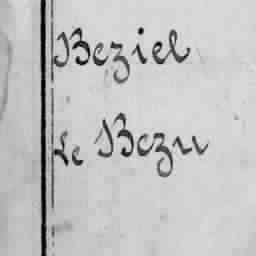 Beziel
Le Bezu